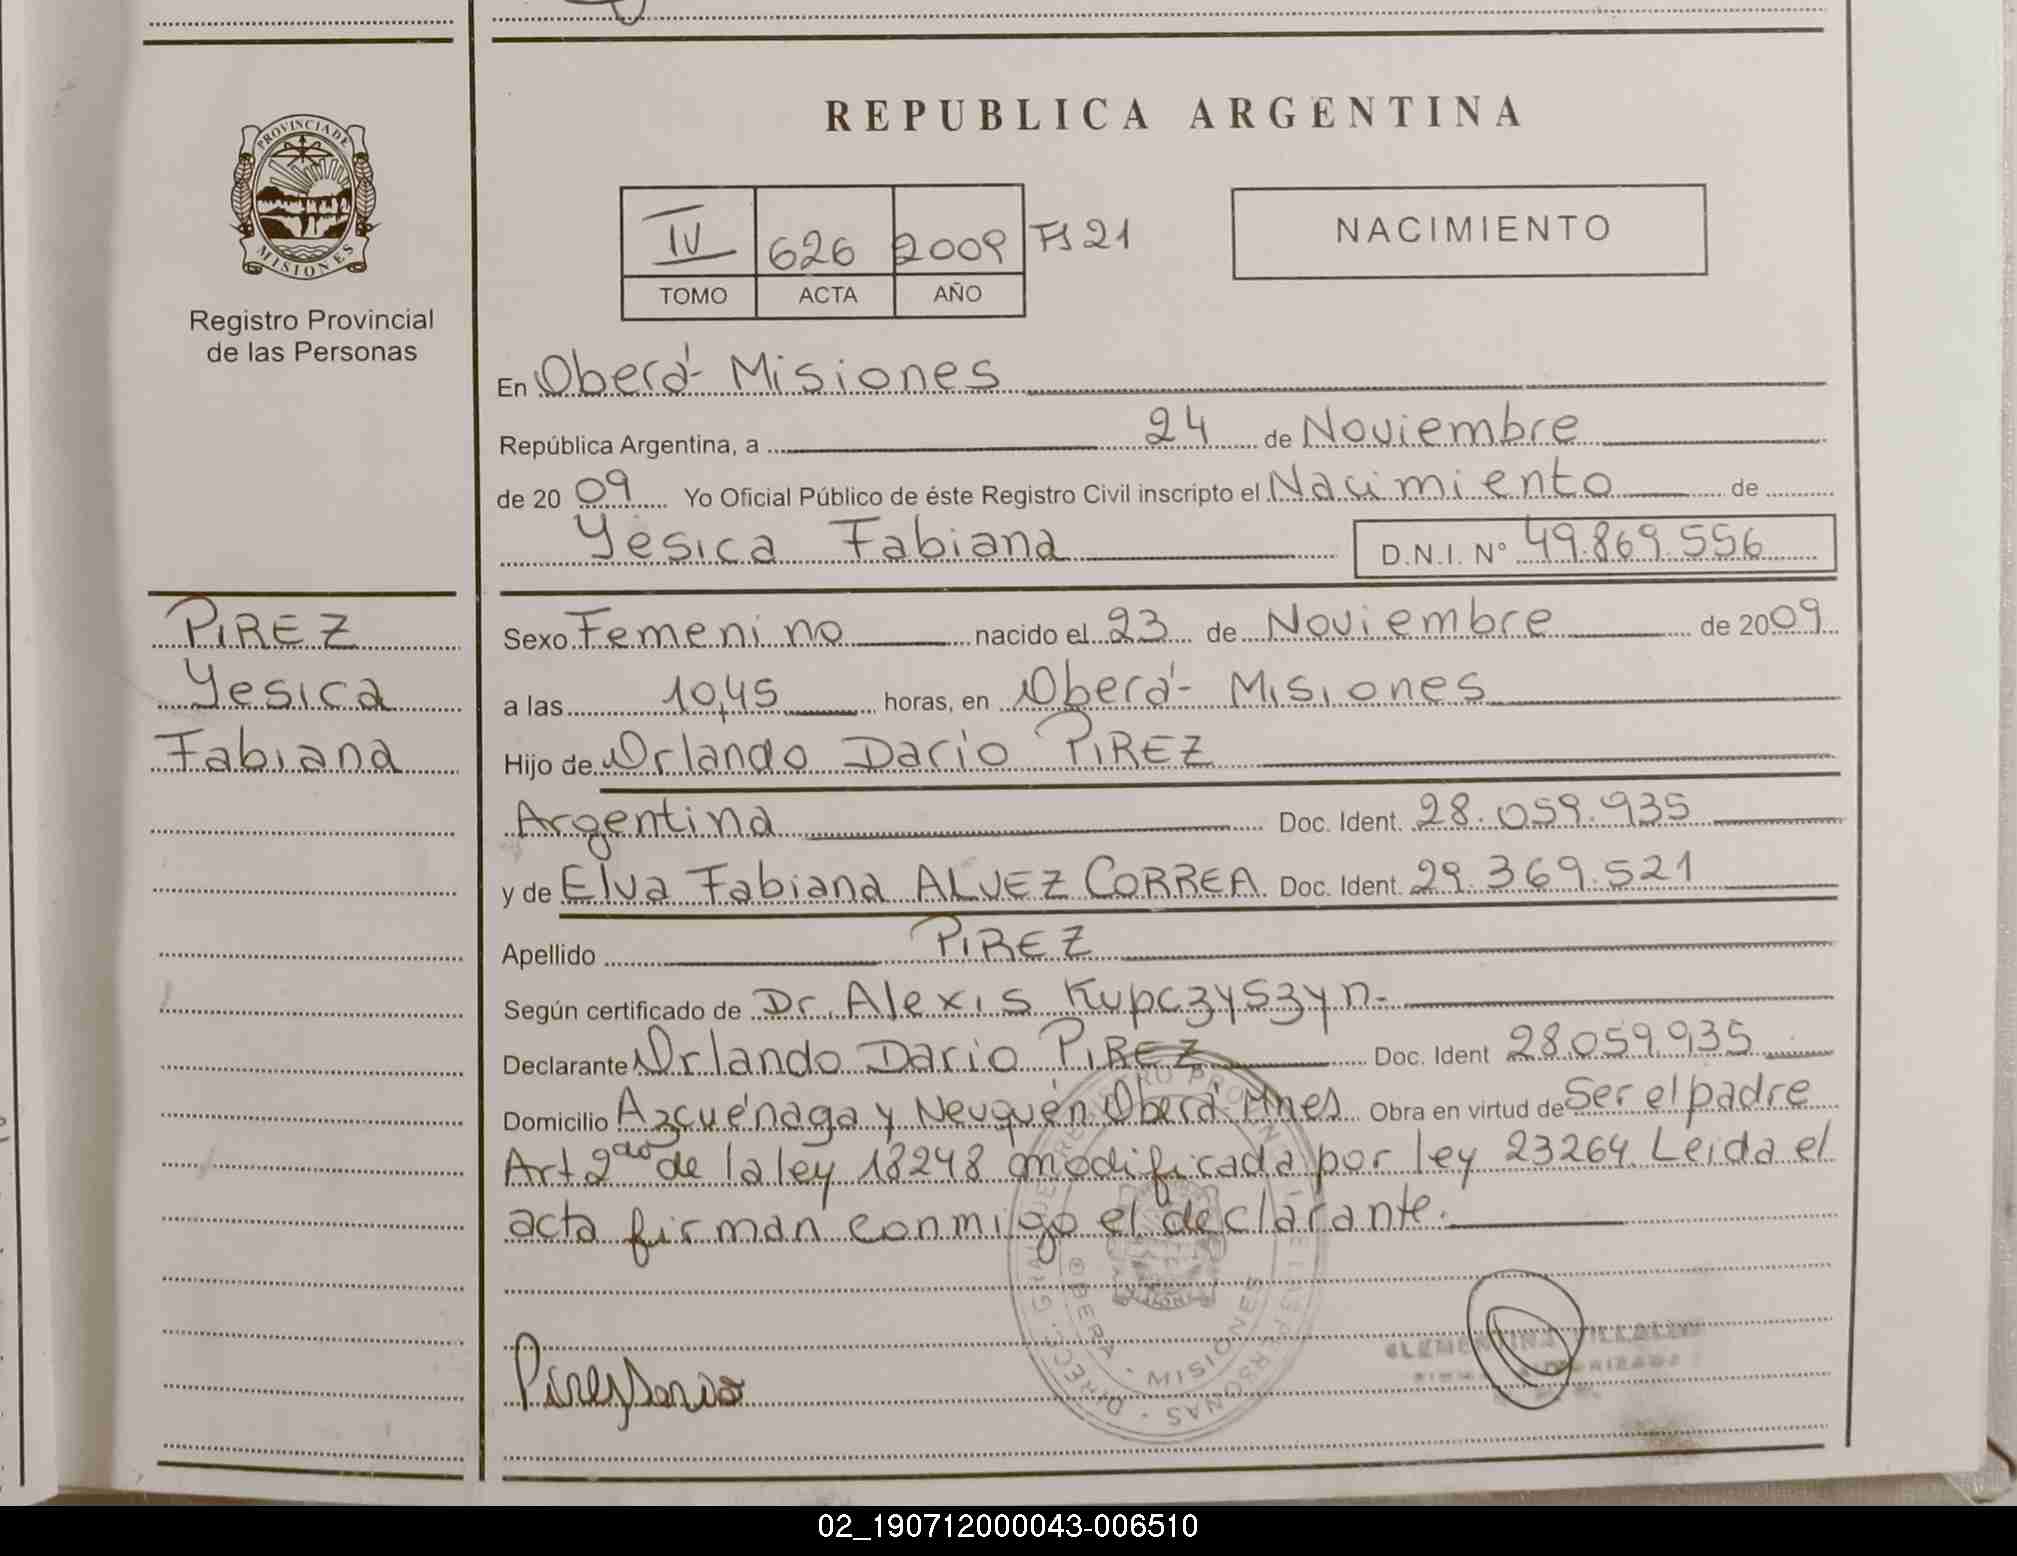 REPUBLICA ARGENTINA
PROVINCIA DE
MISIONES
Registro Provincial
de las Personas
IV 626 2009 Fs 21
TOMO ACTA AÑO
NACIMIENTO
En Oberá - Misiones
República Argentina, a 24 de Noviembre
de 2009 Yo Oficial Público de éste Registro Civil inscripto el Nacimiento de
Yesica Fabiana D.N.I. N° 49.869.556
PIREZ
Yesica
Fabiana
Sexo Femenino nacido el 23 de Noviembre de 2009
a las 10,45 horas, en Oberá - Misiones
Hijo de Orlando Dario PIREZ
Argentina Doc. Ident. 28.059.935
y de Elva Fabiana ALVEZ CORREA Doc. Ident. 29.369.521
Apellido PIREZ
Según certificado de Dr. Alexis Kupczyszyn.-
Declarante Orlando Dario PIREZ Doc. Ident 28.059.935
Domicilio Azcuénaga y Neuquén Oberá Mnes Obra en virtud de Ser el padre
Art 2do de la ley 18248 modificada por ley 23264 Leida el
acta firman conmigo el declarante.
Pirez Dario
OBERA - MISIONES
02_190712000043-006510